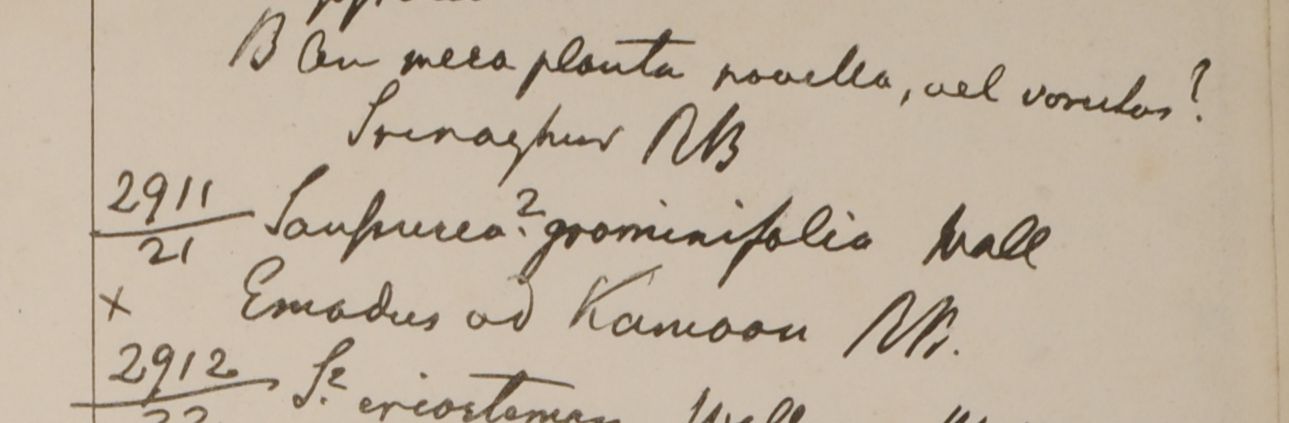 B An mera planta novella, vel varietas?
Srinaghur RB
2911
21 Saussurea? graminifolia Wall
x Emodus ad Kamaon RB.
2912 S? eriostemon Wall
22